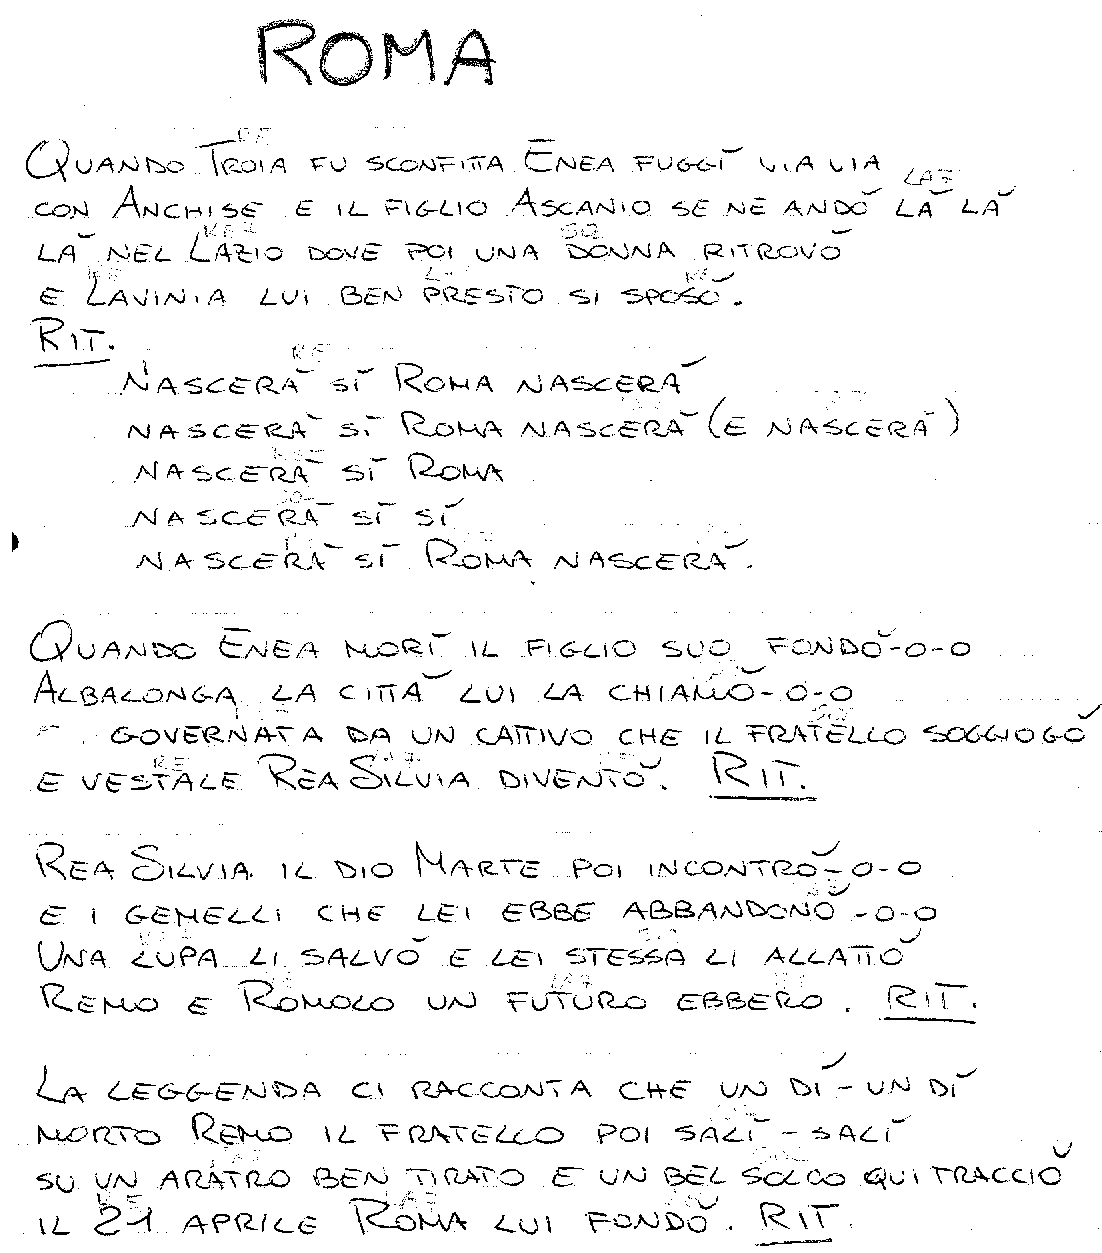 ROMA
QUANDO TROIA FU SCONFITTA ENEA FUGGÌ VIA VIA
CON ANCHISE E IL FIGLIO ASCANIO SE NE ANDÒ LÀ LÀ
LÀ NEL LAZIO DOVE POI UNA DONNA RITROVÒ
E LAVINIA LUI BEN PRESTO SI SPOSÒ.
RIT.
NASCERÀ SÌ ROMA NASCERÀ
NASCERÀ SÌ ROMA NASCERÀ (E NASCERÀ)
NASCERÀ SÌ ROMA
NASCERÀ SÌ SÌ
NASCERÀ SÌ ROMA NASCERÀ.
QUANDO ENEA MORÌ IL FIGLIO SUO FONDÒ-O-O
ALBALONGA LA CITTÀ LUI LA CHIAMÒ-O-O
GOVERNATA DA UN CATTIVO CHE IL FRATELLO SOGGIOGÒ
E VESTALE REA SILVIA DIVENTÒ. RIT.
REA SILVIA IL DIO MARTE POI INCONTRÒ-O-O
E I GEMELLI CHE LEI EBBE ABBANDONÒ-O-O
UNA LUPA LI SALVÒ E LEI STESSA LI ALLATTÒ
REMO E ROMOLO UN FUTURO EBBERO. RIT.
LA LEGGENDA CI RACCONTA CHE UN DÌ-UN DÌ
MORTO REMO IL FRATELLO POI SALÌ-SALÌ
SU UN ARATRO BEN TIRATO E UN BEL SOLCO QUI TRACCIÒ
IL 21 APRILE ROMA LUI FONDÒ. RIT.